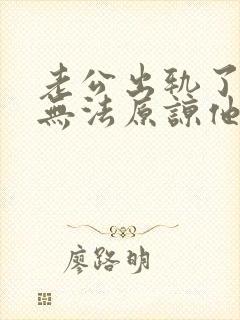 老公出軌了
無法原諒他
廖路明